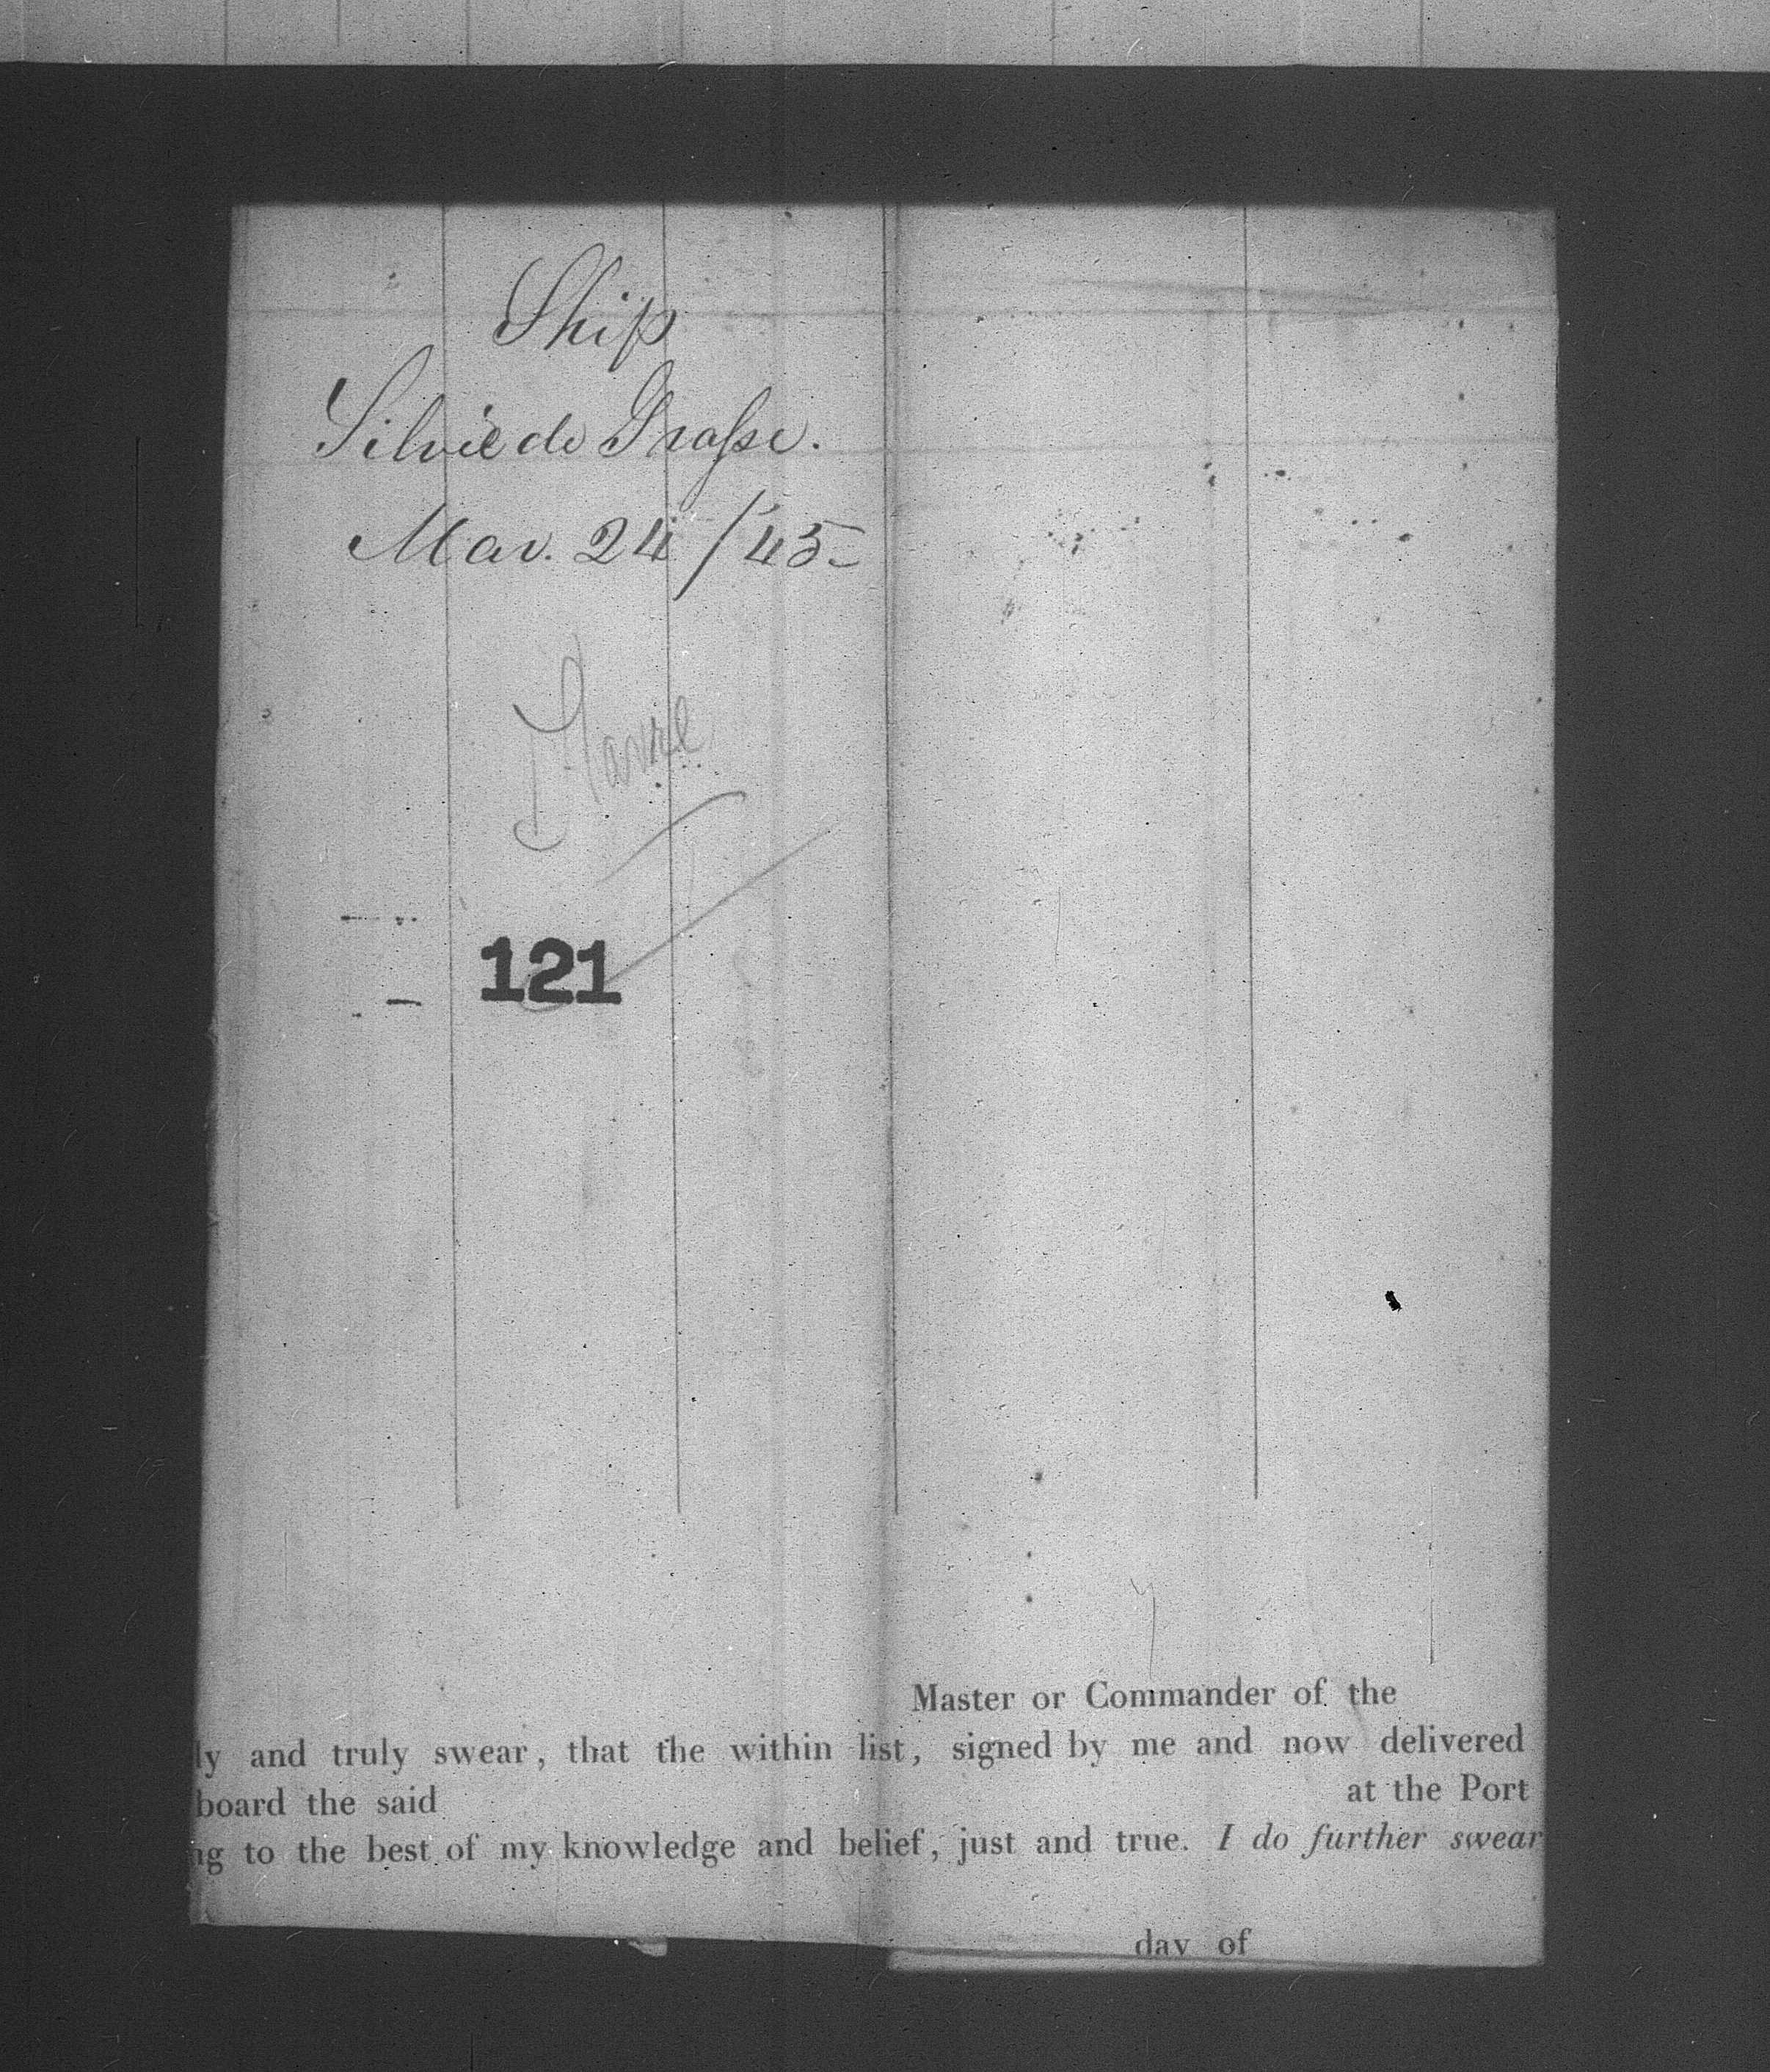 Ship
Silvie de Grasse.
Mar. 24/45
Havre
121
Master or Commander of the
ly and truly swear, that the within list, signed by me and now delivered
board the said at the Port
ng to the best of my knowledge and belief, just and true. I do further swear
day of